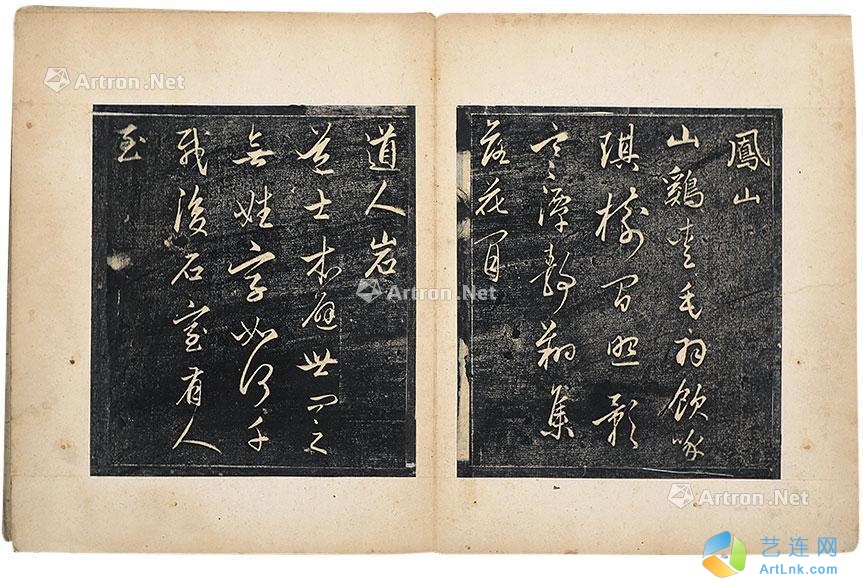 鳳山
山鷄愛毛羽飲啄
琪樹間照影
寒潭静翔集
落花閒
道人岩
道士本避世問之
無姓字如何千
載後石室有人
至
Artron.Net
Artron.Net
Artron.Net
艺连网
ArtLnk.com